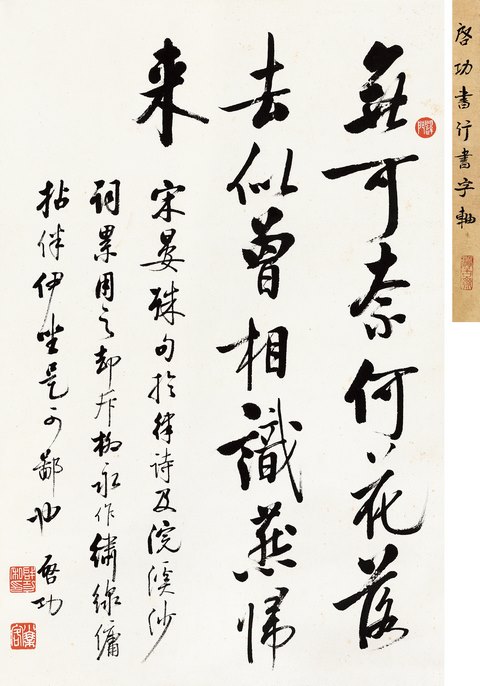 啓功書行書字軸
無可奈何花落
去似曾相識燕歸
来
宋晏殊句於律詩及浣溪沙
詞累用之却斥柳永作繡線慵
拈伴伊坐是可鄙也 啓功